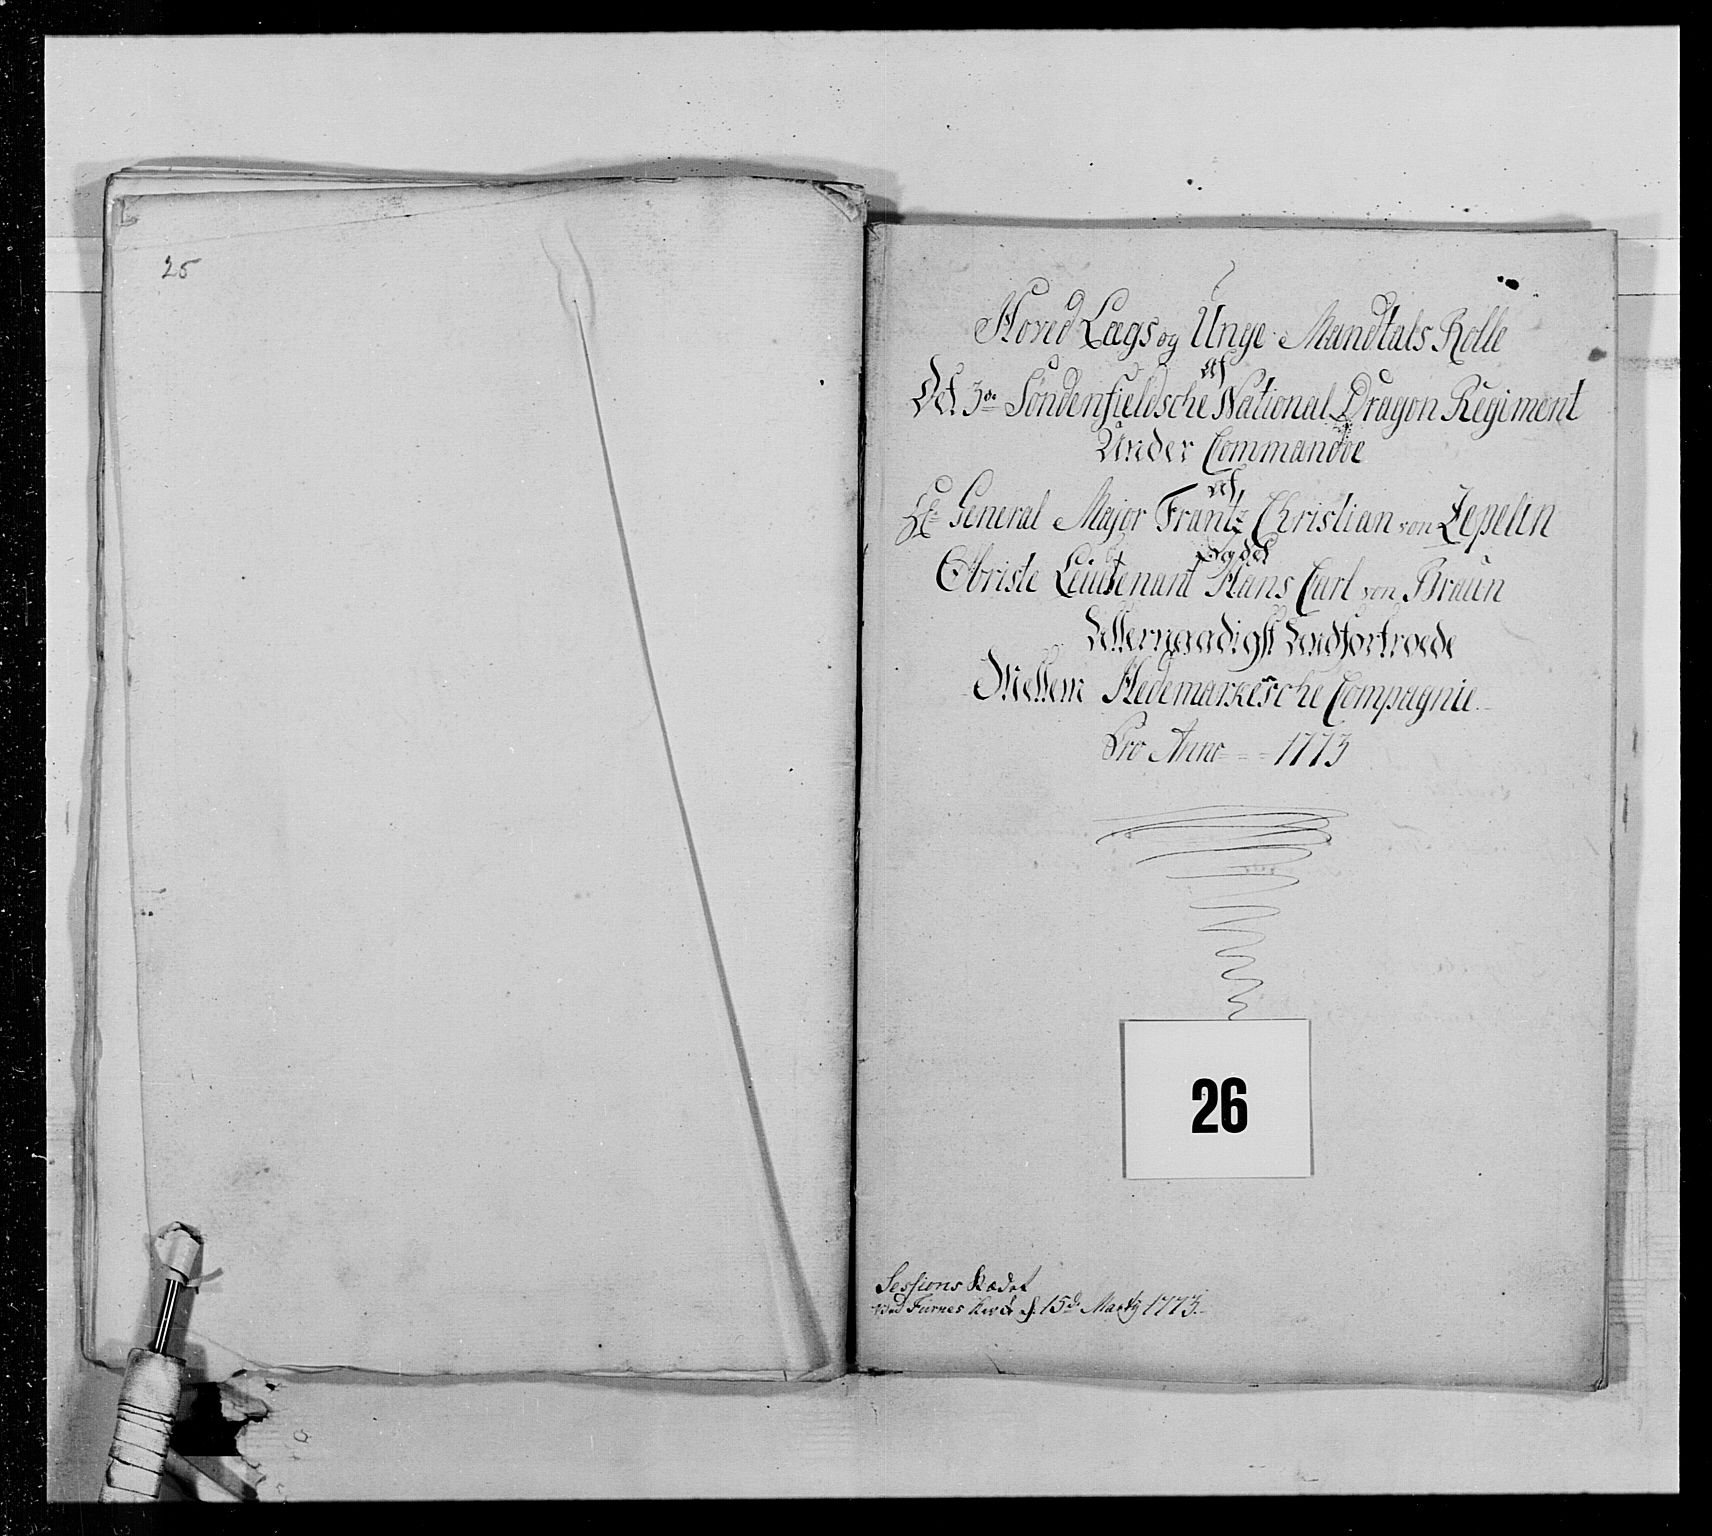 25
Hoved Lægs og Unge Mandtals Rolle
af
Det 3de Söndenfieldsche National Dragon Regiment
Under Commandoe
af
Hr General Major Frantz Christian von Zepelin
Og det
Obriste Leutenant Hans Carl von Braun
Allernaadigst Andfortroede
Mellem Hedemarkesche Compagnie.
Pro Anno - - 1773
26
Sessions Rædet
ved Furnes Kirke d. 15de Martÿ 1773.